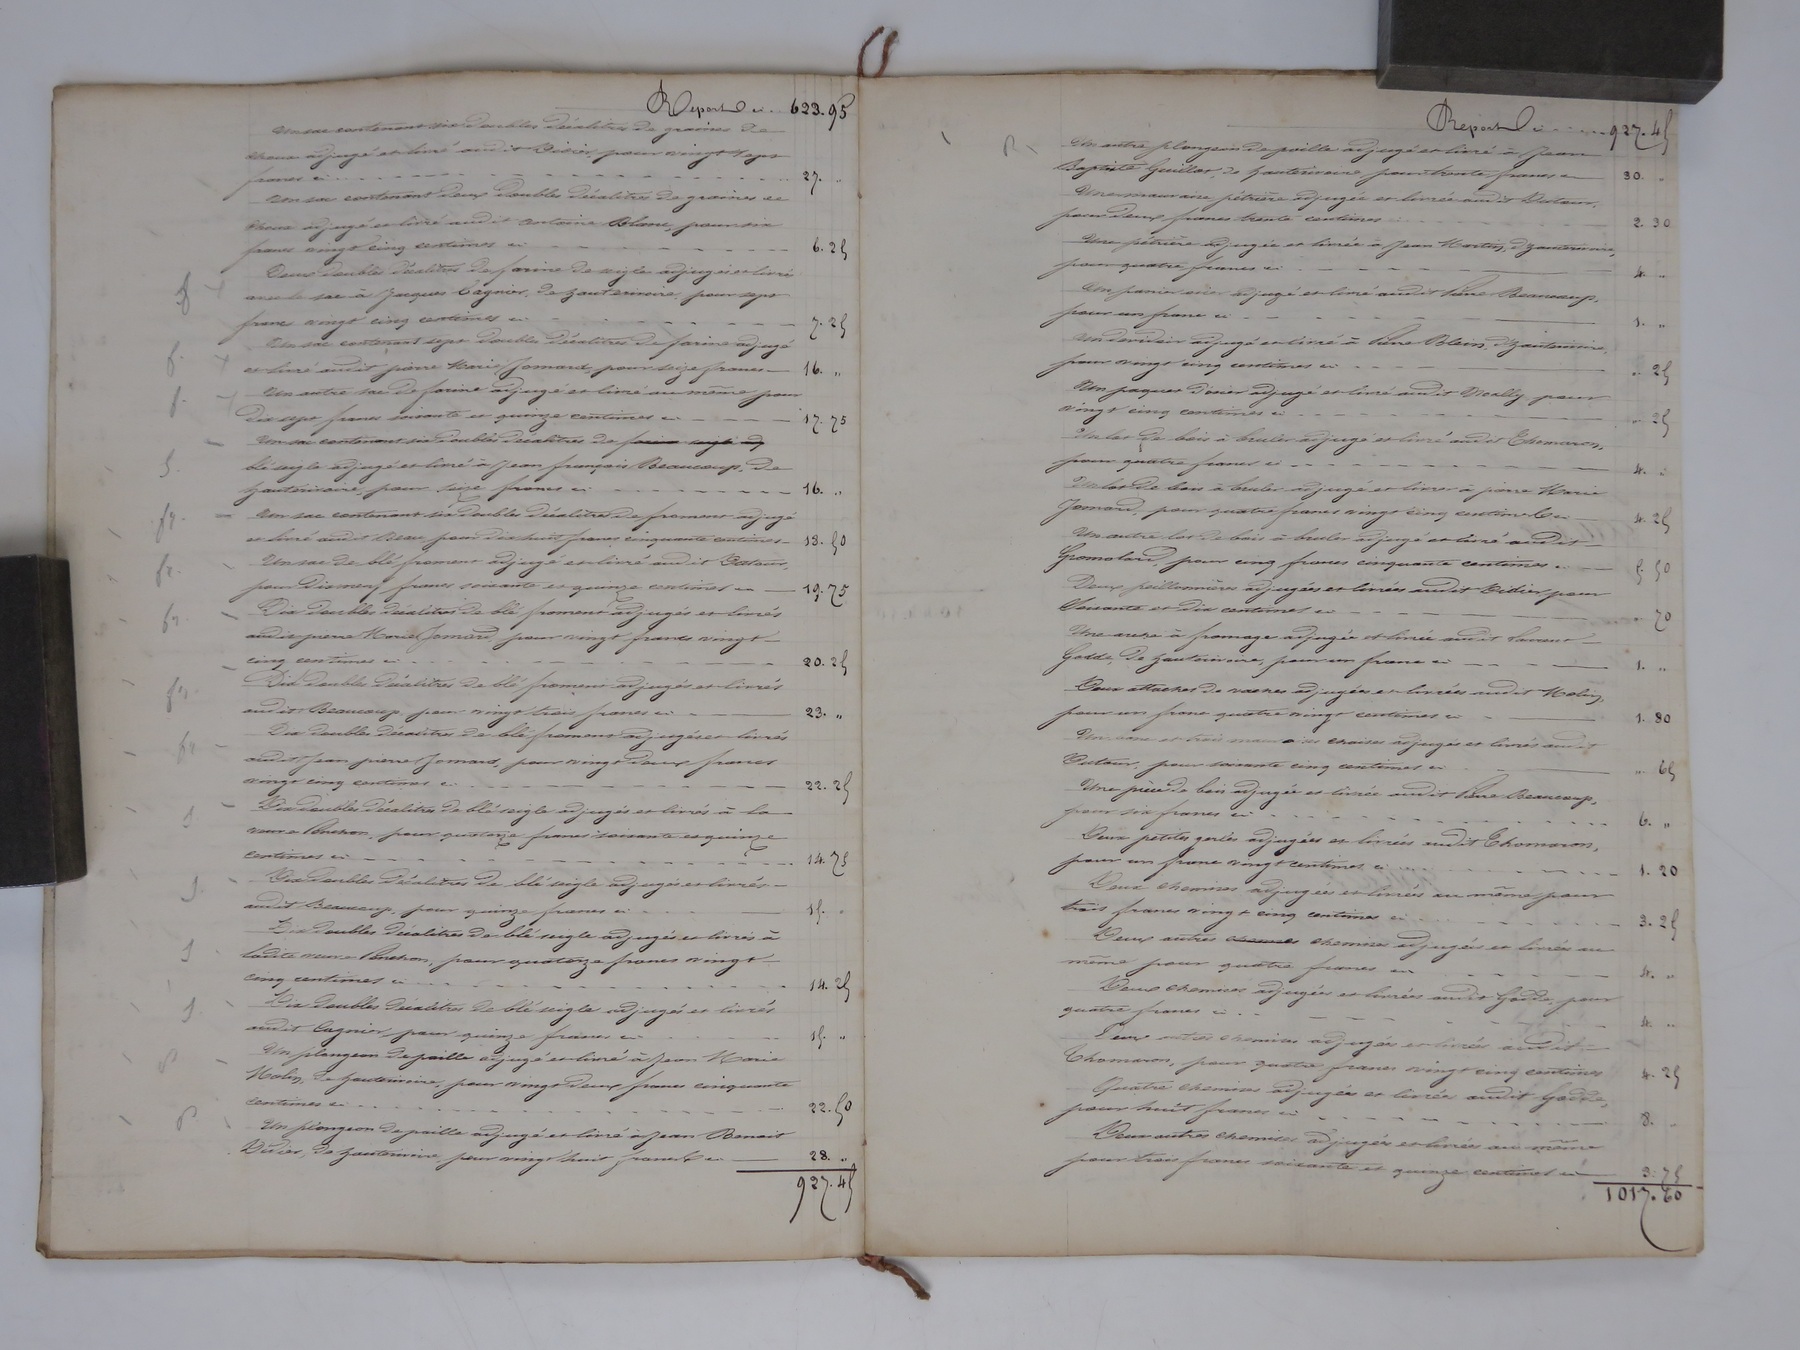 Report ci .. 623.95
Un sac contenant six doubles décalitres de graines de
choux adjugé et livré audit Didier, pour vingt sept
francs ci 27. "
Un sac contenant deux doubles décalitres de graines de
choux adjugé et livré audit Antoine Blanc, pour six
francs vingt cinq centimes ci 6. 25
Deux doubles décalitres de farine de seigle adjugés et livrés
avec le sac à Jacques Cagnier, de hauterivoire, pour sept
francs vingt cinq centimes ci 7. 25
Un sac contenant sept doubles décalitres de farine adjugé
et livré audit pierre Marie Jomard, pour seize francs 16. "
Un autre sac de farine adjugé et livré au même pour
Dix sept francs soixante et quinze centimes ci 17. 75
Un sac contenant six doubles décalitres de farine seigle adj
blé seigle adjugé et livré à Jean françois Beaucoup, de
hauterivoire, pour seize francs ci 16. "
Un sac contenant six doubles décalitres de froment adjugé
et livré audit pour dix huit francs cinquante centimes 18. 50
Un sac de blé froment adjugé et livré audit
pour Dix neuf francs soixante et quinze centimes ci 19. 75
Dix doubles décalitres de blé froment adjugés et livrés
audit pierre Marie Jomard, pour vingt francs vingt
cinq centimes ci 20. 25
Dix doubles décalitres de blé froment adjugés et livrés
audit Beaucoup, pour vingt trois francs ci 23. "
Dix doubles décalitres de blé froment adjugés et livrés
audit Jean pierre Jomard, pour vingt deux francs
vingt cinq centimes ci 22. 25
Dix doubles décalitres de blé seigle adjugés et livrés à la
veuve Ponchon, pour quatorze francs soixante et quinze
centimes ci 14. 75
Dix doubles décalitres de blé seigle adjugés et livrés
audit Beaucoup, pour quinze francs ci 15. "
Dix doubles décalitres de blé seigle adjugés et livrés à
ladite veuve Ponchon, pour quatorze francs vingt
cinq centimes ci 14. 25
Dix doubles décalitres de blé seigle adjugés et livrés
audit Cagnier, pour quinze francs ci 15. "
Un plongeon de paille adjugé et livré à Jean Marie
Molin, de hauterivoire, pour vingt deux francs cinquante
centimes ci 22. 50
Un plongeon de paille adjugé et livré à Jean Benoit
Didier, de hauterivoire, pour vingt huit francs ci 28. "
927. 45
Report ci 927. 45
Un autre plongeon de paille adjugé et livré à Jean
Baptiste Guillot, de hauterivoire, pour trente francs ci 30. "
Une mauvaise pétrière adjugée et livrée audit
pour deux francs trente centimes 2. 30
Une pétrière adjugée et livrée à Jean, d'hauterivoire,
pour quatre francs ci 4. "
Un panier adjugé et livré audit Pierre Beaucoup,
pour un franc ci 1. "
Un devidoir adjugé et livré à Pierre Blein, d'hauterivoire,
pour vingt cinq centimes ci " 25
Un paquet d'osier adjugé et livré audit pour
vingt cinq centimes ci " 25
Un lot de bois à bruler adjugé et livré audit Thomaron,
pour quatre francs ci 4. "
Un lot de bois à bruler adjugé et livré à pierre Marie
Jomard, pour quatre francs vingt cinq centimes ci 4. 25
Un autre lot de bois à bruler adjugé et livré audit
Gromolard, pour cinq francs cinquante centimes 5. 50
Deux paillonnières adjugées et livrées audit Didier pour
Soixante et dix centimes ci 70
Une à fromage adjugée et livrée audit Laurent
Godde, de hauterivoire, pour un franc ci 1. "
Deux attaches de vaches adjugées et livrées audit Molin,
pour un franc quatre vingt centimes ci 1. 80
Un et trois mauvaises chaises adjugés et livrés audit
pour soixante cinq centimes ci " 65
Une pièce de bois adjugée et livrée audit Pierre Beaucoup,
pour six francs ci 6. "
Deux petites gerles adjugées et livrées audit Thomaron,
pour un franc vingt centimes ci 1. 20
Deux chemises adjugées et livrées au même pour
trois francs vingt cinq centimes ci 3. 25
Deux autres chemises adjugées et livrées au
même pour quatre francs ci 4. "
Deux chemises adjugées et livrées audit Godde, pour
quatre francs ci 4. "
Deux autres chemises adjugées et livrées audit
Thomaron, pour quatre francs vingt cinq centimes 4. 25
Quatre chemises adjugées et livrées audit Godde,
pour huit francs ci 8. "
Deux autres chemises adjugées et livrées au même
pour trois francs soixante et quinze centimes ci 3. 75
1017. 60